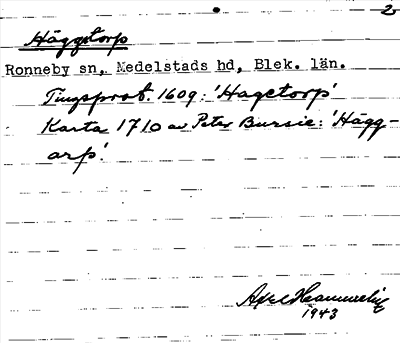 2
Häggetorp
Ronneby sn, Medelstads hd, Blek. län.
Tingsprot. 1609: 'Hagetorp'
Karta 1710 av Peter Bursie: 'Hägg-
arp'.
Axel
1943